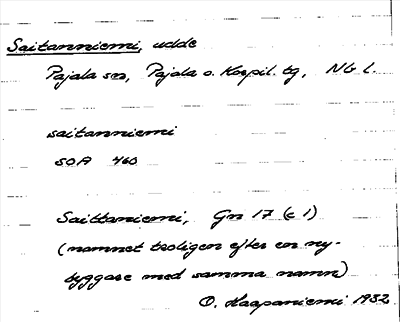 Saitanniemi, udde
Pajala sn, Pajala o. Korpil. tg, Nb l.
saitanniemi
SOA 460
Saittaniemi, Gn 17 (c 1)
(namnet troligen efter en ny-
byggare med samma namn)
O. Haapaniemi 1932